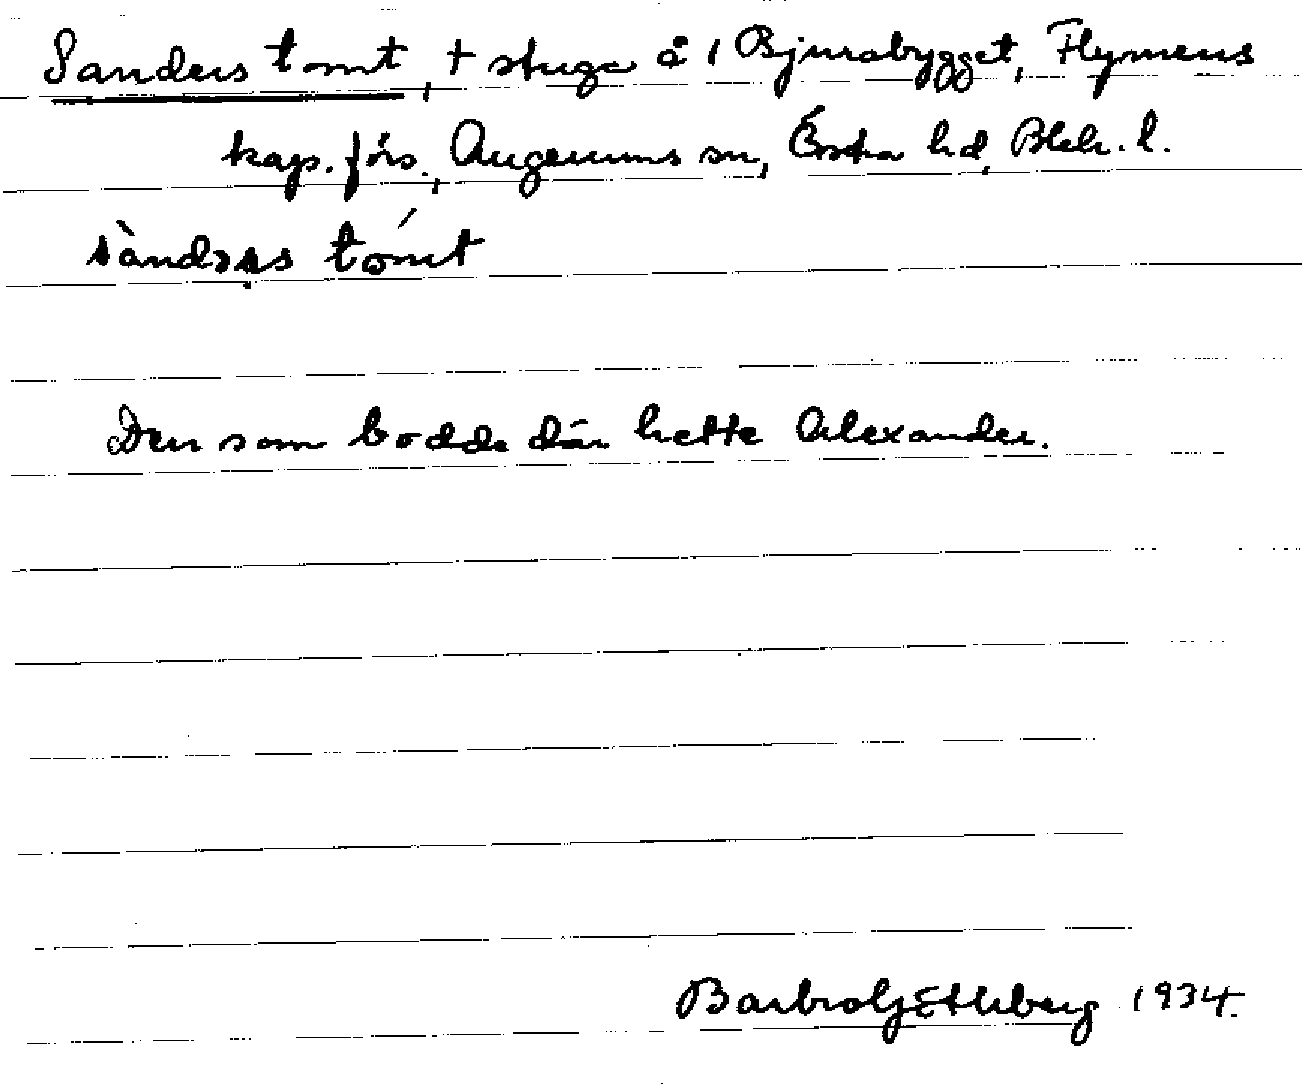 Sanders tomt, + stuga å 1 Bjurabygget, Flymens
kap. förs., Augerums sn, Östra hd, Blek. l.
sàndərs tómt
Den som bodde där hette Alexander.
Barbro Götlleberg 1934.